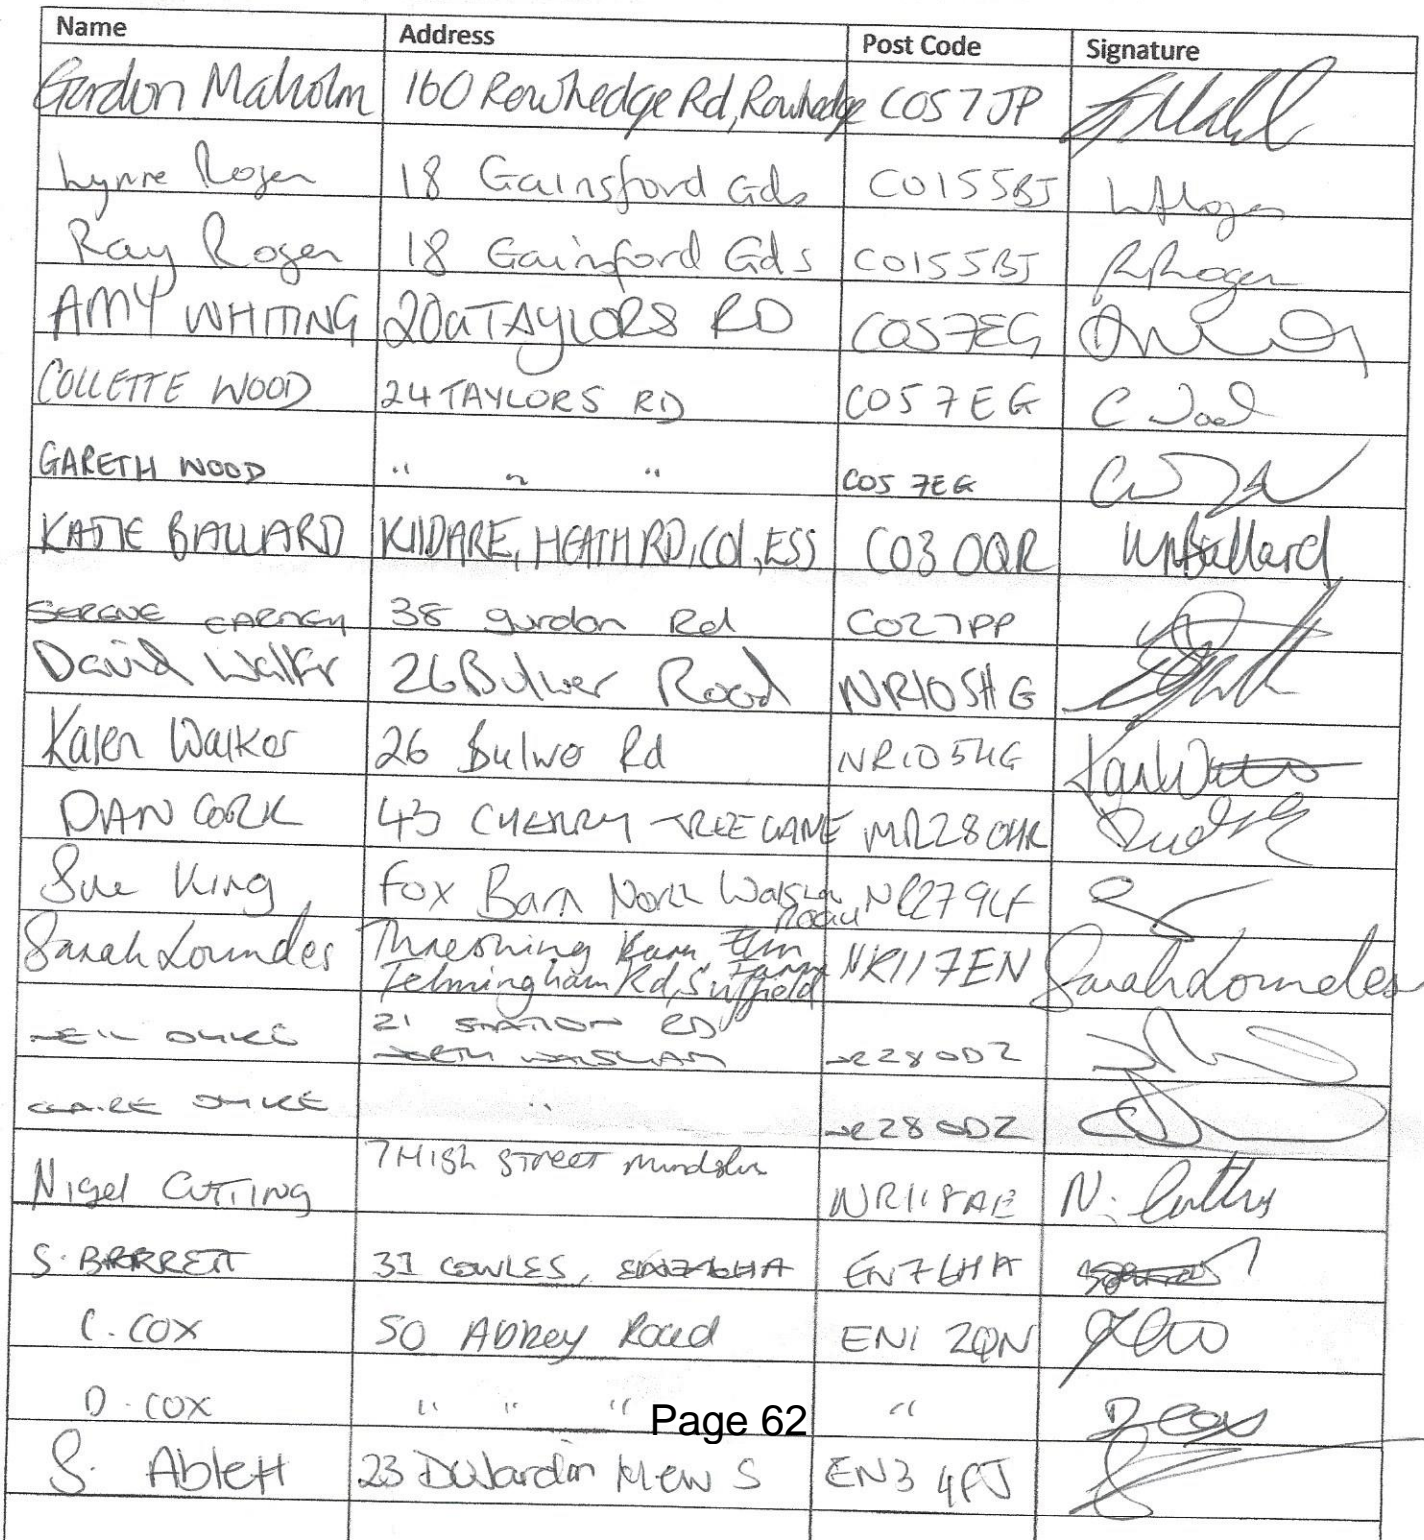 Name Address Post Code Signature
Gordon Malcolm 160 Rowhedge Rd, Rowhedge CO5 7JP
Lynne Rogers 18 Gainsford Gds CO15 5BJ
Ray Rogers 18 Gainsford Gds CO15 5BJ R Rogers
AMY WHITING 20a TAYLORS RD CO5 7EG
COLLETTE WOOD 24 TAYLORS RD CO5 7EG C Wood
GARETH WOOD " " " CO5 7EG
KATIE BALLARD KILDARE, HEATH RD, COL, ESS CO3 0QR Ballard
SERENE CARNEY 38 gurdon Rd CO2 7PP
David Walker 26 Bulwer Road NR10 5HG
Karen Walker 26 Bulwer Rd NR10 5HG
DAN CORK 43 CHERRY TREE LANE NR28 0HR
Sue King Fox Barn North Walsham Road NR27 9LF
Sarah Lowndes Threshing Barn, Elm Farm NR11 7EN Sarah Lowndes
Felmingham Rd, Suffield
NEIL 21 STATION RD
NORTH WALSHAM NR28 0DZ
CLAIRE " NR28 0DZ
Nigel CUTTING 7 HIGH STREET Mundesley NR11 8AE N. Cutting
S. BARRETT 31 COWLES, EN7 6HA
C. COX 50 Abbey Road EN1 2QN
D. COX " " " " D Cox
S. Ablett 23 Dujardin Mews EN3 4PJ
Page 62